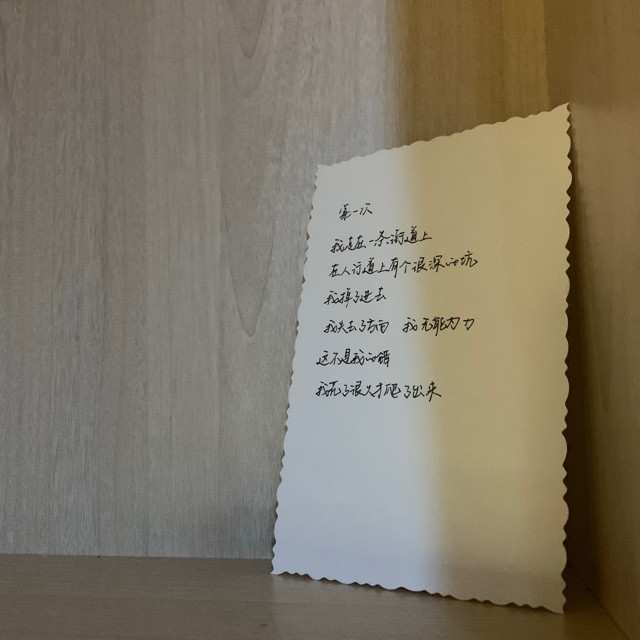 第一次
我走在一条街道上
在人行道上有个很深的坑
我掉了进去
我失去了方向 我无能为力
这不是我的错
我花了很久才爬了出来